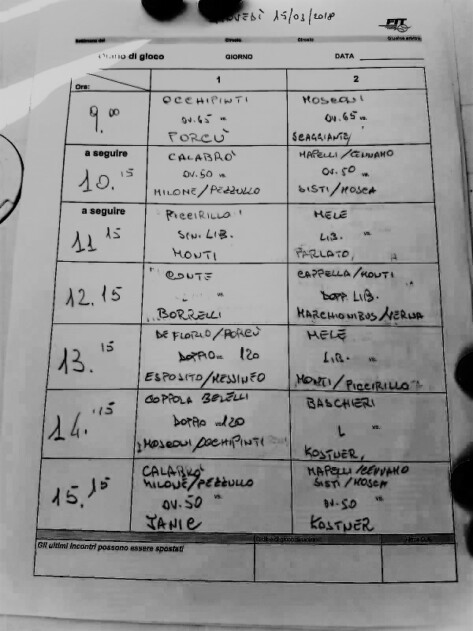 15/03/2018
FIT
Diario di gioco GIORNO DATA
Ore: 1 2
9.00
OCCHIPINTI
OV.45 vs
PORCÙ
MOSEONI
OV.65 vs
SCAGGIANTE
a seguire
10.15
CALABRÒ
OV.50 vs
MILONE/PEZZULLO
MAPELLI/GENNAMO
OV.50
SISTI/MOSCA
a seguire
11.15
PICCIRILLO
SIN. LIB.
MONTI
MELE
LIB. vs
PARLATO
12.15
CONTE
vs
BORRELLI
CAPPELLA/MONTI
DOPP. LIB.
MARCHIONIBUS/VERNA
13.15
DE FLORIO/PORCÙ
DOPPIO 120
ESPOSITO/MESSINEO
MELE
LIB. vs
MONTI/PICCIRILLO
14.15
COPPOLA BELELLI
DOPPIO 120
MOSEONI/OCCHIPINTI
BASCHERI
L vs
KOSTNER
15.15
CALABRÒ
MILONE/PEZZULLO
OV.50 vs
JANIC
MAPELLI/GENNAMO
SISTI/MOSCA
OV.50 vs
KOSTNER
Gli ultimi incontri possono essere spostati